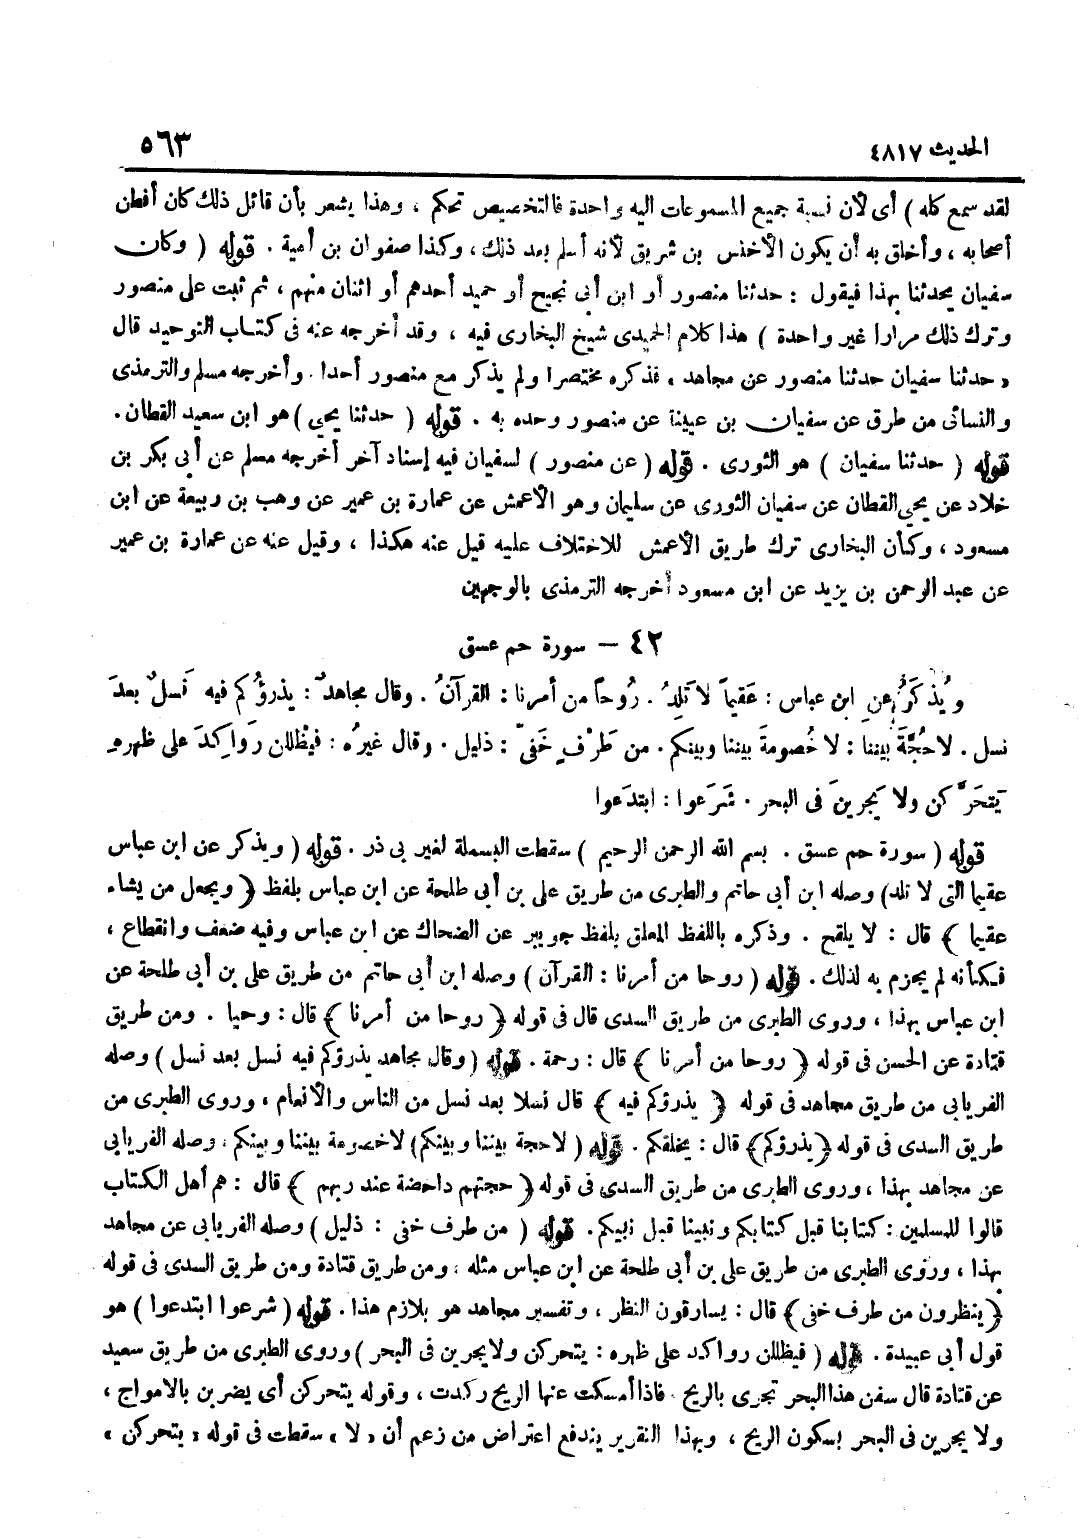 الحديث ٤٨١٧
٥٦٣
لقد سمع كله ) أى لأن نسبة جميع المسموعات اليه واحدة فالتخصيص تحكم ، وهذا يشعر بأن قائل ذلك كان أفطن
أصحابه ، وأخلق به أن يكون الأخنس بن شريق لأنه أسلم بعد ذلك ، وكذا صفوان بن أمية . قوله ( وكان
سفيان يحدثنا بهذا فيقول : حدثنا منصور أو ابن أبى نجيح أو حميد أحدهم أو اثنان منهم ، ثم ثبت على منصور
وترك ذلك مرارا غير واحدة ) هذا كلام الحميدى شيخ البخارى فيه ، وقد أخرجه عنه فى كتاب التوحيد قال
« حدثنا سفيان حدثنا منصور عن مجاهد ، فذكره مختصرا ولم يذكر مع منصور أحدا . وأخرجه مسلم والترمذى
والنسائى من طرق عن سفيان بن عيينة عن منصور وحده به . قوله ( حدثنا يحيى ) هو ابن سعيد القطان .
قوله ( حدثنا سفيان ) هو الثورى . قوله ( عن منصور ) لسفيان فيه إسناد آخر أخرجه مسلم عن أبى بكر بن
خلاد عن يحيى القطان عن سفيان الثورى عن سليمان وهو الأعمش عن عمارة بن عمير عن وهب بن ربيعة عن ابن
مسعود ، وكأن البخارى ترك طريق الأعمش للاختلاف عليه قيل عنه هكذا ، وقيل عنه عن عمارة بن عمير
عن عبد الرحمن بن يزيد عن ابن مسعود أخرجه الترمذى بالوجهين
٤٢ – سورة حم عسق
ويُذكَرُ عن ابن عباس : عَقيماً لا تَلِدُ . رُوحاً من أمرنا : القرآنُ . وقال مجاهدٌ : يذرؤُكم فيه نَسلٌ بعدَ
نسل . لا حُجَّةَ بيننا : لا خُصومةَ بيننا وبينكم . من طَرْفٍ خَفىّ : ذليل . وقال غيرُه : فيظللن رَواكِدَ على ظهره
يَتحَرَّكن ولا يَجرينَ فى البحر . شَرَعوا : ابتدَعوا
قوله ( سورة حم عسق . بسم الله الرحمن الرحيم ) سقطت البسملة لغير بى ذر . قوله ( ويذكر عن ابن عباس
عقيما التى لا تلد ) وصله ابن أبى حاتم والطبرى من طريق على بن أبى طلحة عن ابن عباس بلفظ ﴿ ويجعل من يشاء
عقيما ﴾ قال : لا يلقح . وذكره باللفظ المعلق بلفظ جويبر عن الضحاك عن ابن عباس وفيه ضعف وانقطاع ،
فكأنه لم يجزم به لذلك . قوله ( روحا من أمرنا : القرآن ) وصله ابن أبى حاتم من طريق على بن أبى طلحة عن
ابن عباس بهذا ، وروى الطبرى من طريق السدى قال فى قوله ﴿ روحا من أمرنا ﴾ قال : وحيا . ومن طريق
قتادة عن الحسن فى قوله ﴿ روحا من أمرنا ﴾ قال : رحمة . قوله ( وقال مجاهد يذرؤكم فيه نسل بعد نسل ) وصله
الفريابى من طريق مجاهد فى قوله ﴿ يذرؤكم فيه ﴾ قال نسلا بعد نسل من الناس والأنعام ، وروى الطبرى من
طريق السدى فى قوله ﴿ يذرؤكم ﴾ قال : يخلقكم . قوله ( لا حجة بيننا وبينكم ) لا خصومة بيننا وبينكم ، وصله الفريابى
عن مجاهد بهذا ، وروى الطبرى من طريق السدى فى قوله ﴿ حجتهم داحضة عند ربهم ﴾ قال : هم أهل الكتاب
قالوا للمسلمين : كتابنا قبل كتابكم ونبينا قبل نبيكم . قوله ( من طرف خفى : ذليل ) وصله الفريابى عن مجاهد
بهذا ، وروى الطبرى من طريق على بن أبى طلحة عن ابن عباس مثله ، ومن طريق قتادة ومن طريق السدى فى قوله
﴿ ينظرون من طرف خفى ﴾ قال : يسارقون النظر ، وتفسير مجاهد هو بلازم هذا . قوله ( شرعوا ابتدعوا ) هو
قول أبى عبيدة . قوله ( فيظللن رواكد على ظهره : يتحركن ولا يجرين فى البحر ) وروى الطبرى من طريق سعيد
عن قتادة قال سفن هذا البحر تجرى بالريح . فاذا أمسكت عنها الريح ركدت ، وقوله يتحركن أى يضربن بالامواج ،
ولا يجرين فى البحر بسكون الريح ، وبهذا التقرير يندفع اعتراض من زعم أن « لا » سقطت فى قوله « يتحركن »